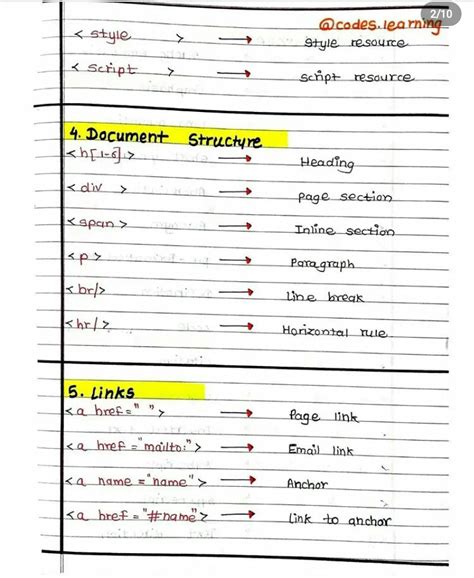 2/10
@codes.learning
<style > → style resource
<script > → script resource
4. Document Structure
<h[1-6]> → Heading
<div > → page section
<span> → Inline section
<p> → Paragraph
<br/> → Line break
<hr/> → Horizontal rule
5. Links
<a href=" "> → Page link
<a href="mailto:"> → Email link
<a name="name"> → Anchor
<a href="#name"> → Link to anchor